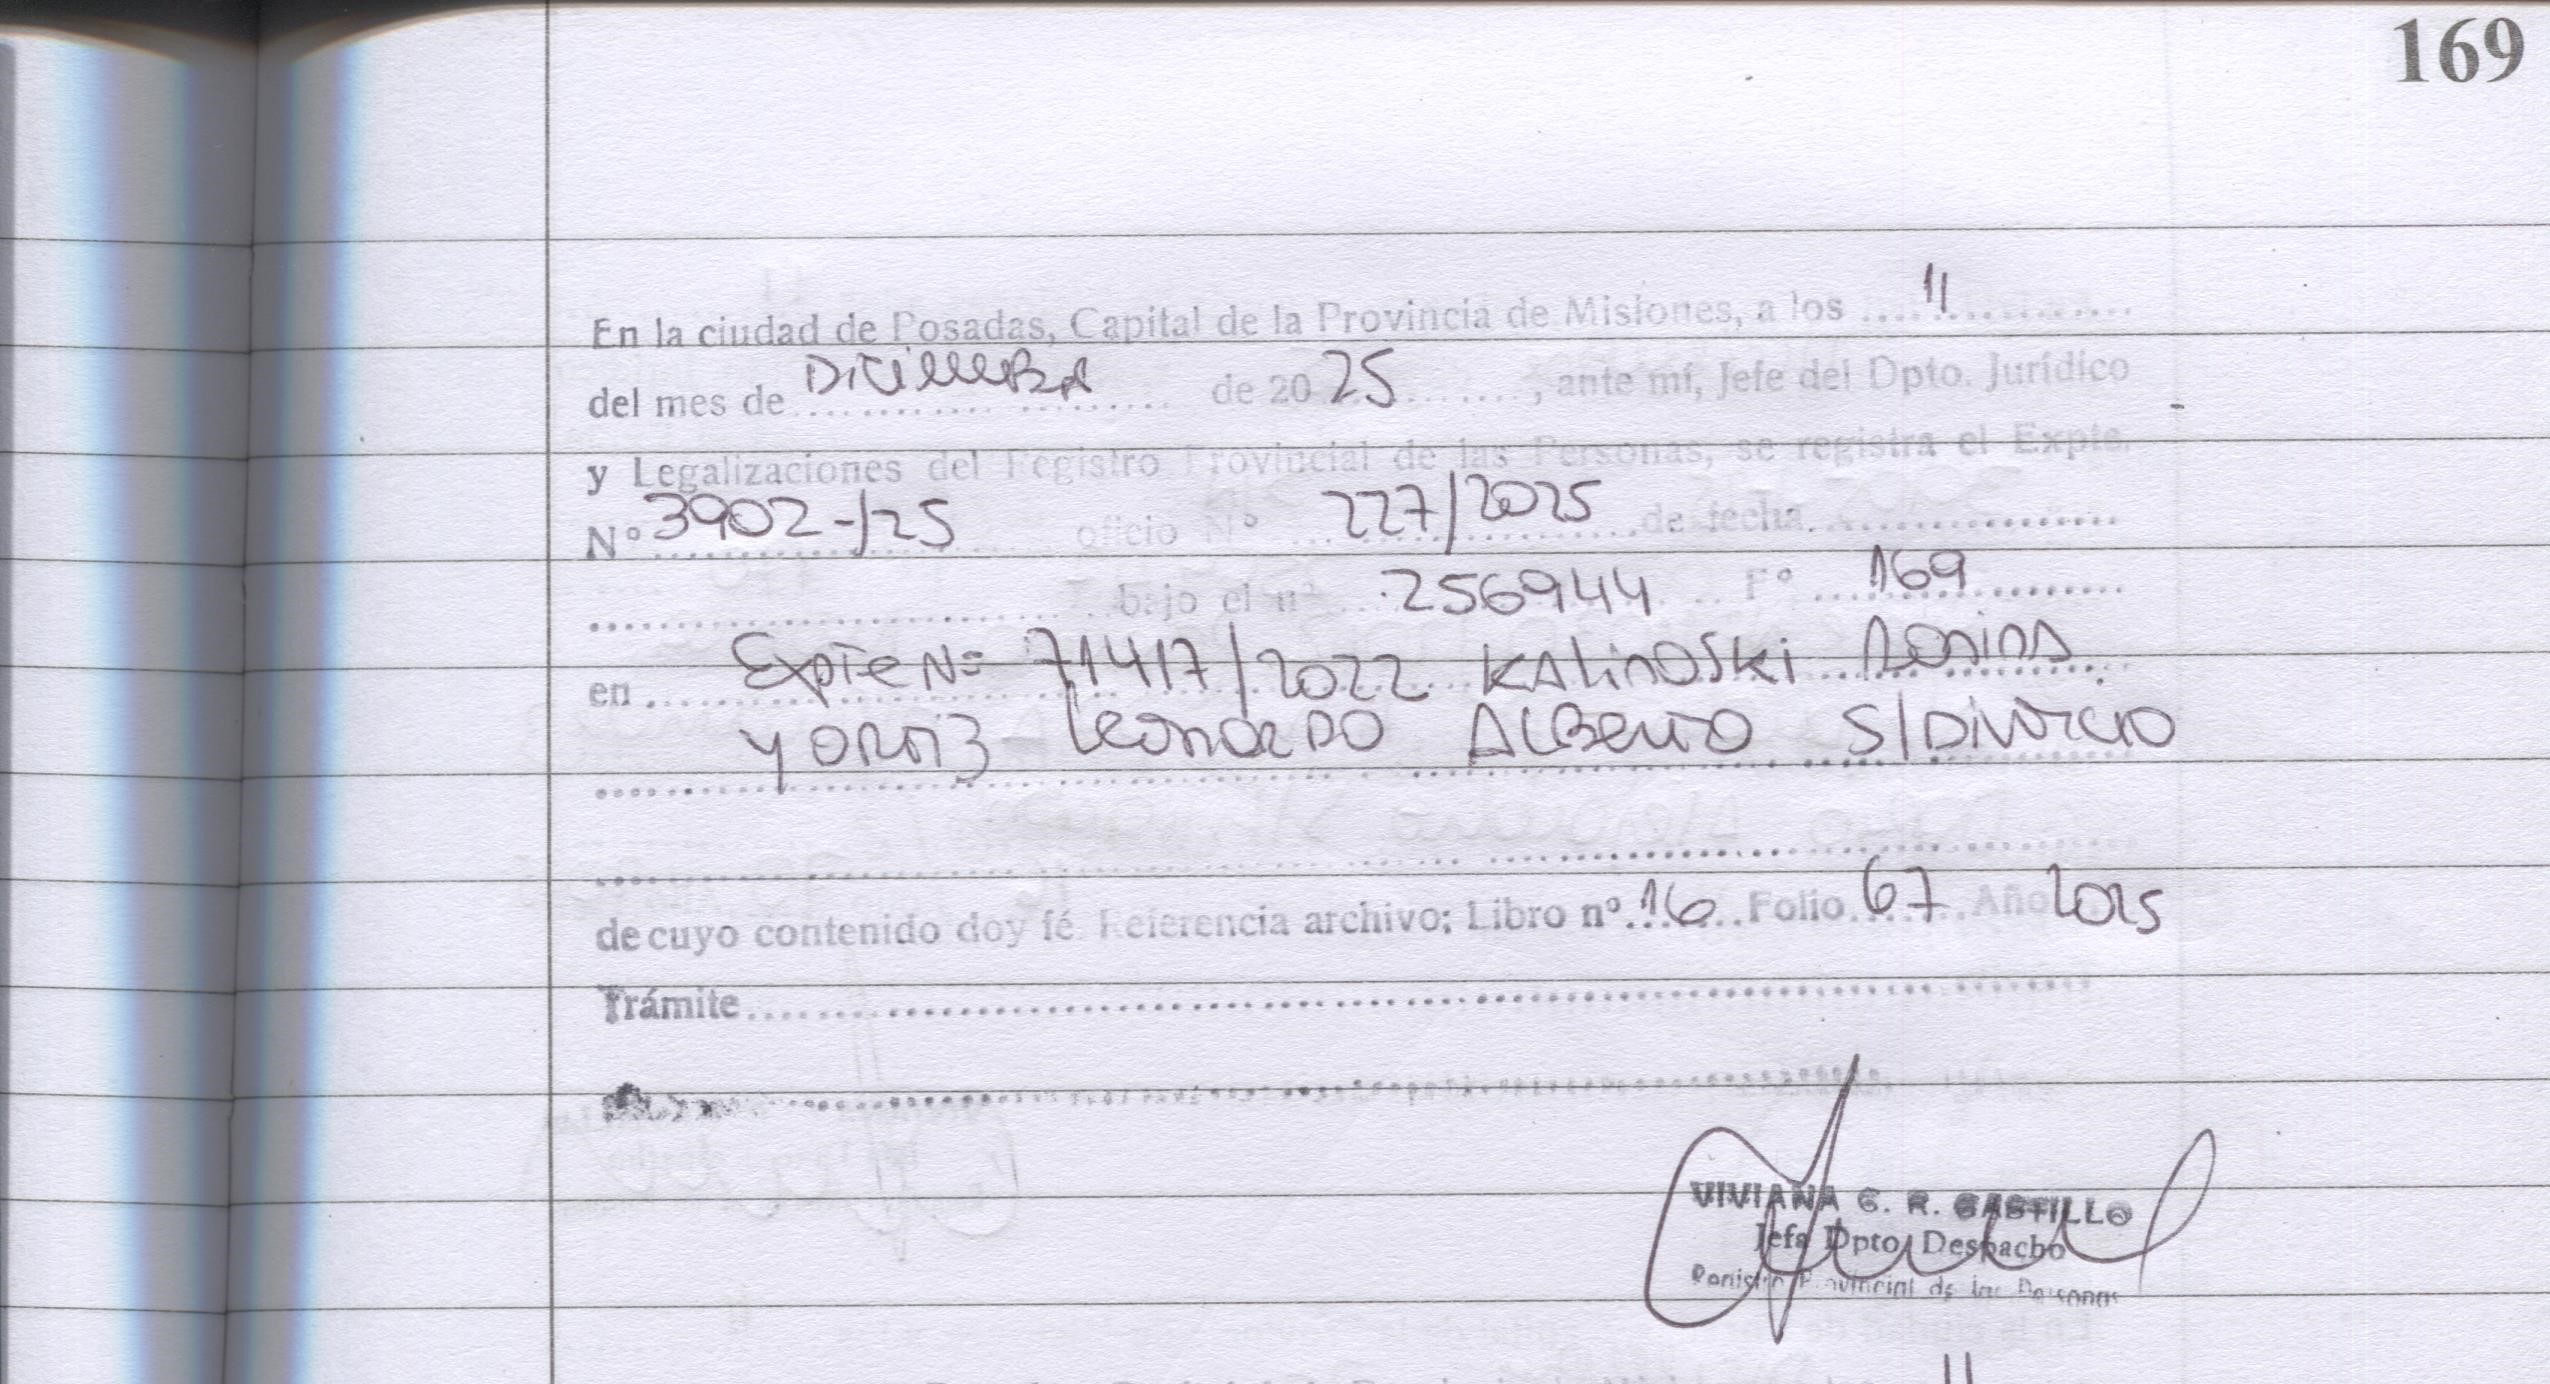 169
En la ciudad de Posadas, Capital de la Provincia de Misiones, a los 11
del mes de Diciembre de 2025, ante mí, Jefe del Dpto. Jurídico
y Legalizaciones del Registro Provincial de las Personas, se registra el Expte.
Nº 3902-/25 oficio Nº 227/2025 de fecha
bajo el nº 256944 Fº 169
en Expte Nº 71417/2022 Kalinoski
y Leonardo Alberto S/Divorcio
de cuyo contenido doy fé Referencia archivo; Libro nº 16 Folio 67 Año 2025
Trámite
VIVIANA G. R. CASTILLO
Jefa Dpto. Despacho
Registro Provincial de las Personas
11